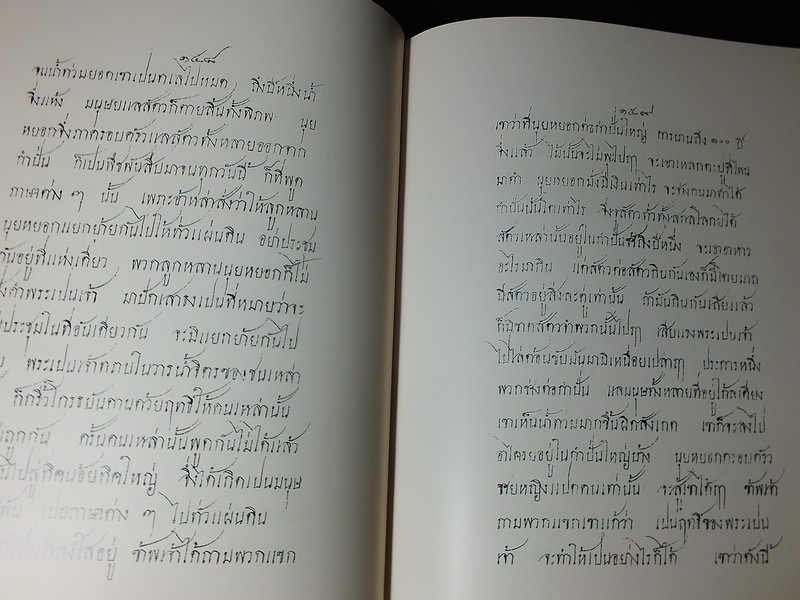 ๑๔๘
จนน้ำท่วมยอดเขาเปนทเลไปหมด ถึงปีหนึ่งน้ำ
จึ่งแห้ง มนุษยแลสัตวก็ตายสิ้นทั้งสิภพ นุย
หยอกจึ่งภาครอบครัวแลสัตวทั้งหลายออกจาก
กำปั่น ก็เป็นพืชพันสืบมาจนทุกวันนี้ ก็ที่พูด
ภาษาต่าง ๆ นั้น เพราะอ้าหล่าสั่งว่าให้ลูกหลาน
นุยหยอกแยกย้ายกันไปให้ทั่วแผ่นดิน อย่าประชุม
กันอยู่ที่แห่งเดียว พวกลูกหลานนุยหยอกก็ไม่
คำพระเปนเจ้า มาปักเสาธงเปนที่หมายว่าจะ
ประชุมในที่อันเดียวกัน จะมิแยกย้ายกันไป
พระเปนเจ้าทราบในวารน้ำจิตรของชนเหล่า
ก็กริ้วโกรธบันดานด้วยฤทธิให้คนเหล่านั้น
ถูกกัน ครั้นคนเหล่านั้นพูดกันไม่ได้แล้ว
ไปสู่ทิศน้อยทิศใหญ่ จึ่งได้เกิดเปนมนุษ
เปนภาษาต่าง ๆ ไปทั่วแผ่นดิน
สงไสอยู่ ข้าพเจ้าได้ถามพวกแขก
๑๔๙
เขาว่าที่นุยหยอกต่อกำปั่นใหญ่ การนานถึง ๑๐๐ ปี
จึ่งแล้ว ไม้นั้นจะไม่ผุไปฤๅ จะเอาเหลกตะปูที่ไหน
มาทำ นุยหยอกมั่งมีเงินเท่าไร จะจ้างคนมาทำได้
กำปั่นนั้นโตเท่าไร จึ่งจุสัตวทั่วทั้งสกลโลกยได้
สัตวเหล่านั้นอยู่ในกำปั่นถึงปีหนึ่ง จะเอาอาหาร
อะไรมากิน แต่สัตวต่อสัตวกินกันเองก็มีโดยมาก
มีสัตวอยู่สิ่งละคู่เท่านั้น ถ้ามันกินกันเสียแล้ว
ก็มิขาดสัตวจำพวกนั้นไปฤๅ เสียแรงพระเปนเจ้า
ไปไล่ต้อนขับมันมามิเหนื่อยเปล่าฤๅ ประการหนึ่ง
พวกช่างต่อกำปั่น แลมนุษทั้งหลายที่อยู่ใกล้เคียง
เขาเห็นน้ำท่วมมากขึ้นผิดสังเกต เขาก็จะลงไป
อาไศรยอยู่ในกำปั่นใหญ่บ้าง นุยหยอกครอบครัว
ชายหญิงแปดคนเท่านั้น จะสู้เขาได้ฤๅ ข้าพเจ้า
ถามพวกแขกเขาแก้ว่า เปนฤทธิของพระเปน
เจ้า จะทำให้เปนอย่างไรก็ได้ เขาว่าดังนี้